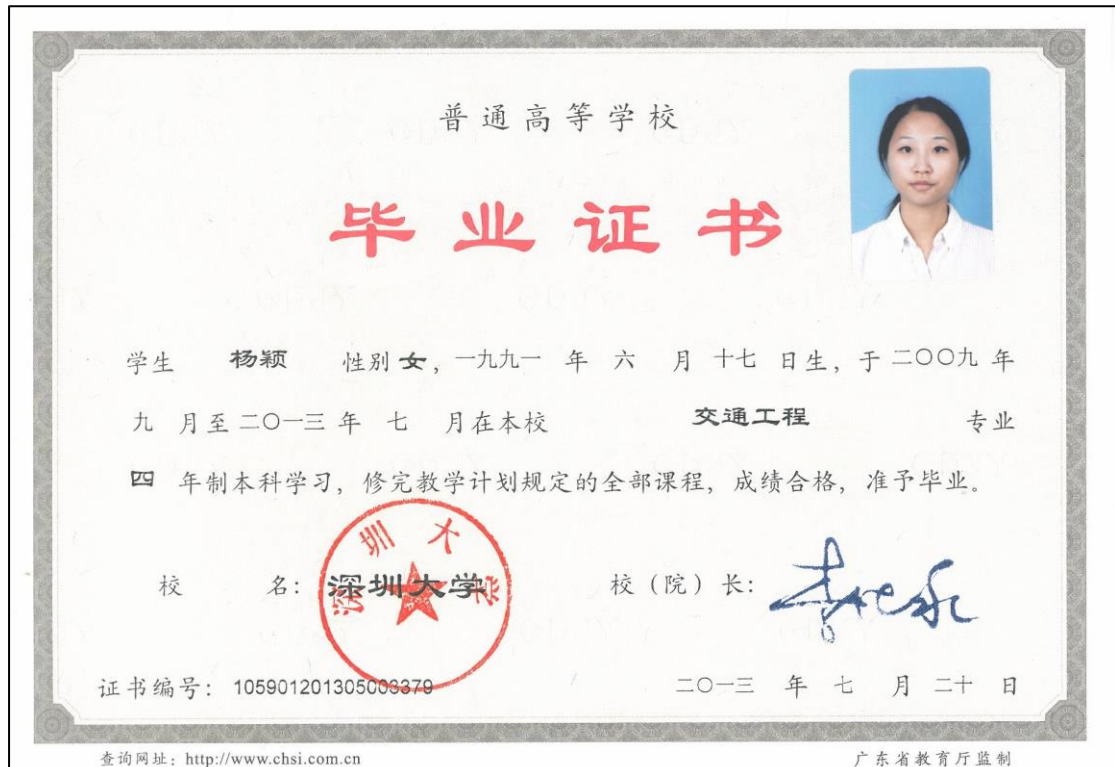 普通高等学校
毕业证书
学生 杨颖 性别 女，一九九一 年 六 月 十七 日生，于二〇〇九 年
九 月至 二〇一三 年 七 月在本校 交通工程 专业
四 年制本科学习，修完教学计划规定的全部课程，成绩合格，准予毕业。
校 名：深圳大学 校（院）长：
深圳大学
证书编号：105901201305003379 二〇一三 年 七 月 二十 日
查询网址：http://www.chsi.com.cn 广东省教育厅监制